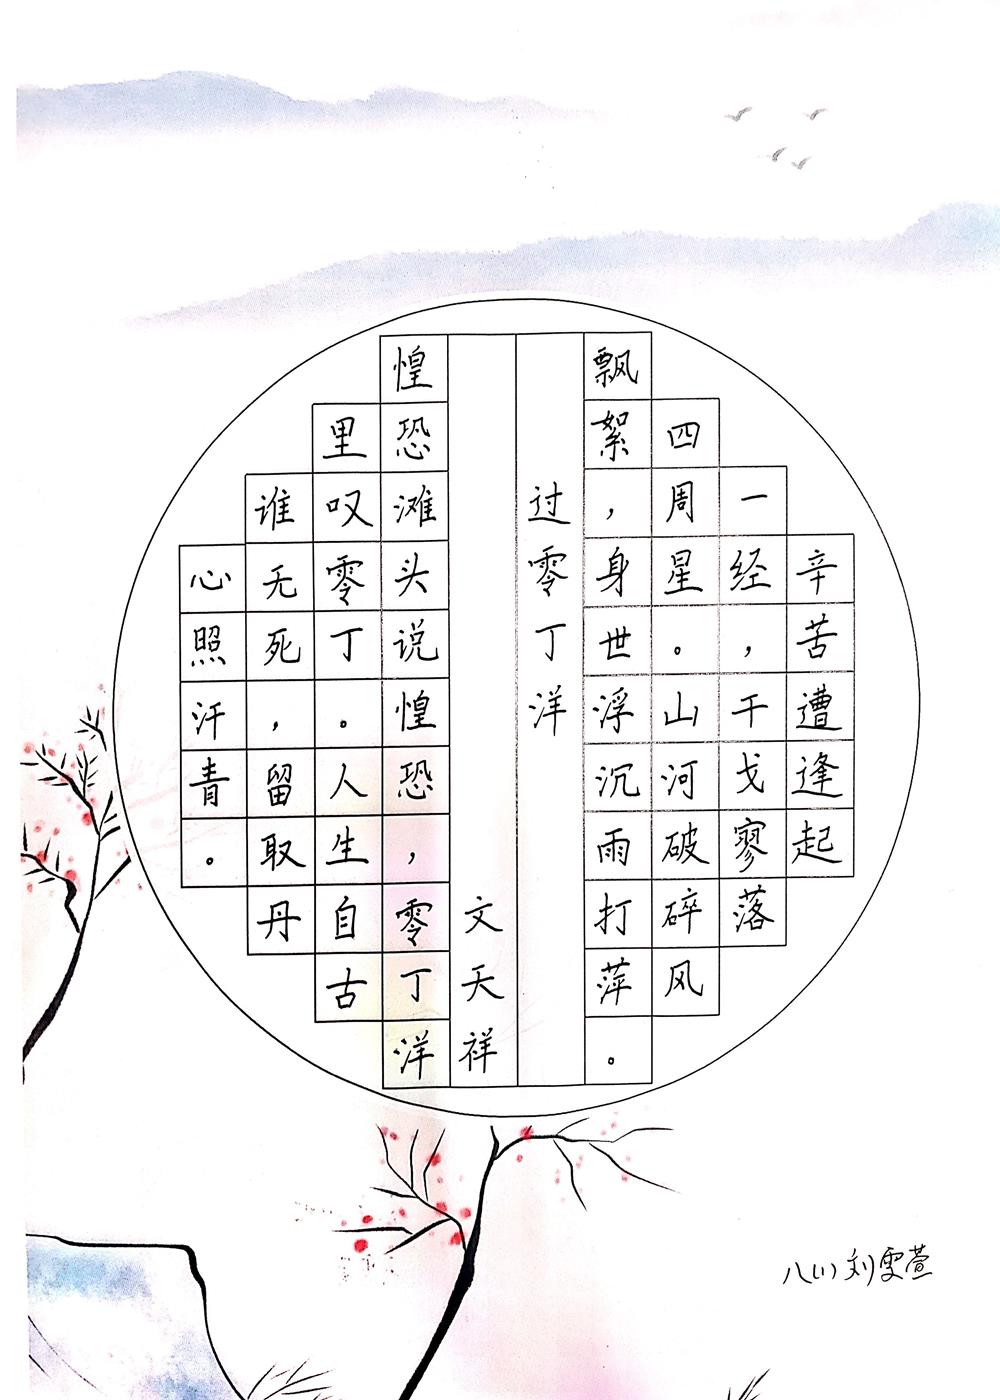 辛苦遭逢起
一经，干戈寥落
四周星。山河破碎风
飘絮，身世浮沉雨打萍。
过零丁洋
文天祥
惶恐滩头说惶恐，零丁洋
里叹零丁。人生自古
谁无死，留取丹
心照汗青。
八(1) 刘雯萱